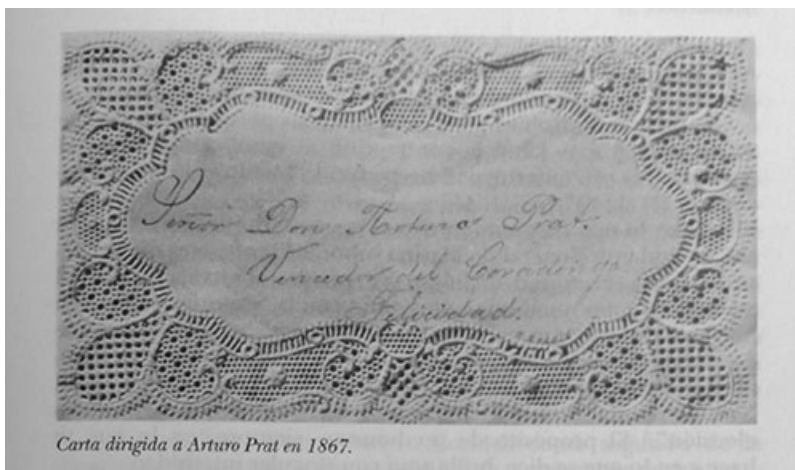 Señor Don Arturo Prat.
Vencedor del Covadonga
Felicidad.
Carta dirigida a Arturo Prat en 1867.